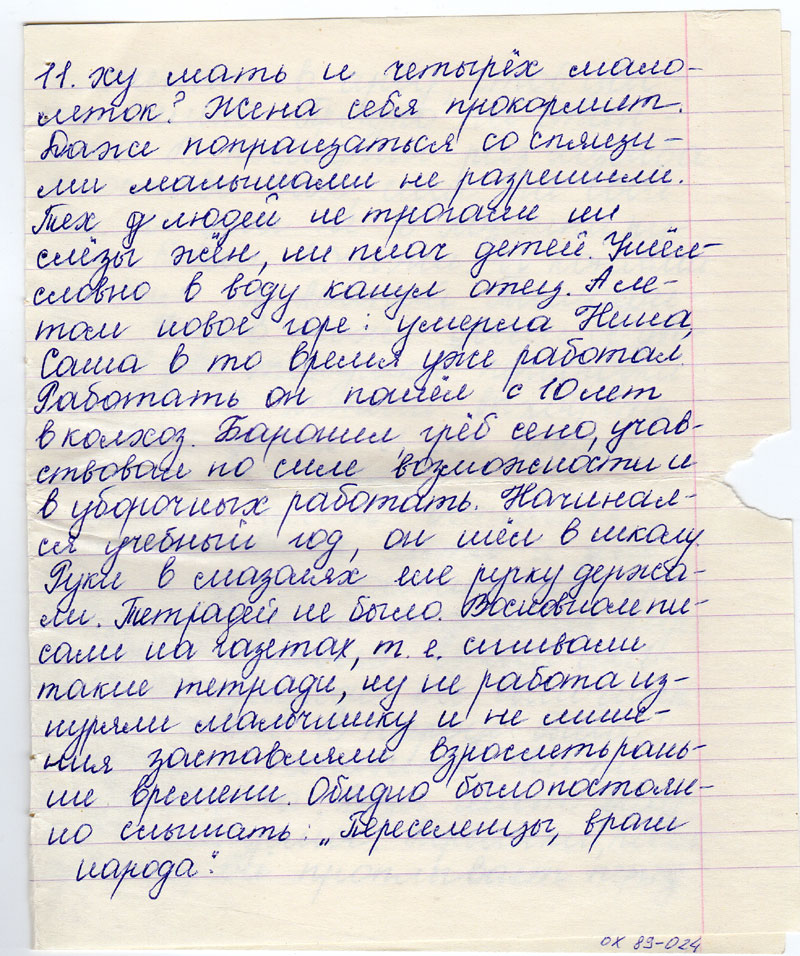 11. ху мать и четырёх мало-
леток? Жена себя прокормит.
Даже попрощаться со спящи-
ми малышами не разрешили.
Тех людей не трогали ни
слёзы жён, ни плач детей. Ушёл-
словно в воду канул отец. А ле-
том новое горе: умерла Нина,
Саша в то время уже работал.
Работать он пошёл с 10 лет
в колхоз. Боронил, грёб сено, учав-
ствовал по силе возможности и
в уборочных работать. Начинал-
ся учебный год, он шёл в школу.
Руки в мазолях еле ручку держа-
ли. Тетрадей не было. Восновном пи-
сали на газетах, т. е. сшивали
такие тетради, ну не работа из-
нуряли мальчишку и не лише-
ния заставляли взрослеть рань-
ше времени. Обидно было постоян-
но слышать: „Переселенцы, враги
народа".
ОХ 89-024